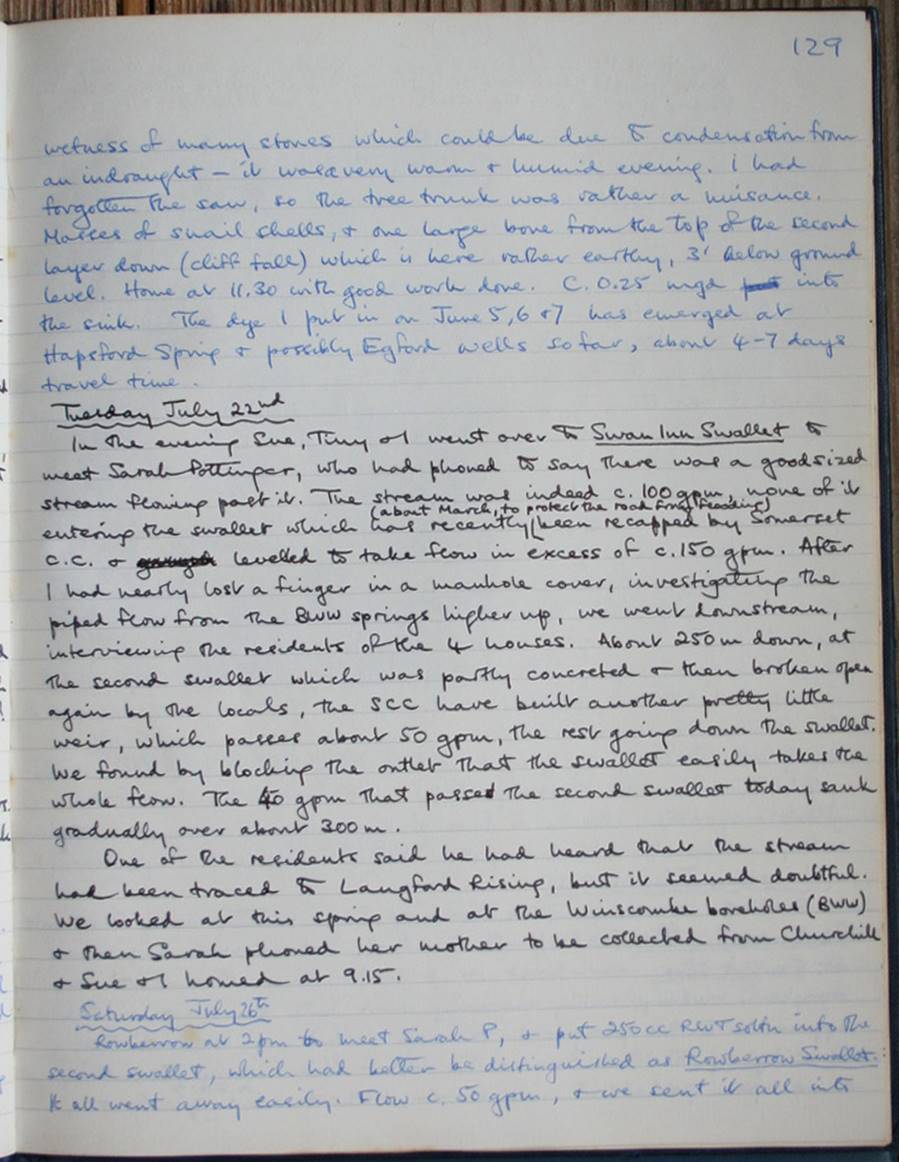 129
wetness of many stones which could be due to condensation from
an indraught – it was a very warm & humid evening. I had
forgotten the saw, so the tree trunk was rather a nuisance.
Masses of snail shells, & one large bone from the top of the second
layer down (cliff fall) which is here rather earthy, 3' below ground
level. Home at 11.30 with good work done. C. 0.25 mgd put into
the sink. The dye I put in on June 5, 6 & 7 has emerged at
Hapsford Spring & possibly Egford wells so far, about 4-7 days
travel time.
Tuesday July 22nd
In the evening Sue, Tiny & I went over to Swan Inn Swallet to
meet Sarah Pottinger, who had phoned to say there was a good sized
stream flowing past it. The stream was indeed c. 100 gpm, none of it
(about March, to protect the road from flooding)
entering the swallet which has recently been recapped by Somerset
C.C. & levelled to take flow in excess of c. 150 gpm. After
I had nearly lost a finger in a manhole cover, investigating the
piped flow from the BWW springs higher up, we went downstream,
interviewing the residents of the 4 houses. About 250 m down, at
the second swallet which was partly concreted & then broken open
again by the locals, the SCC have built another pretty little
weir, which passes about 50 gpm, the rest going down the swallet.
We found by blocking the outlet that the swallet easily takes the
whole flow. The 40 gpm that passed the second swallet today sank
gradually over about 300 m.
One of the residents said he had heard that the stream
had been traced to Langford Rising, but it seemed doubtful.
We looked at this spring and at the Winscombe boreholes (BWW)
& then Sarah phoned her mother to be collected from Churchill
& Sue & I homed at 9.15.
Saturday July 26th
Rowberrow at 2pm to meet Sarah P, & put 250cc RWT soltn into the
second swallet, which had better be distinguished as Rowberrow Swallet:
It all went away easily. Flow c. 50 gpm, & we sent it all into